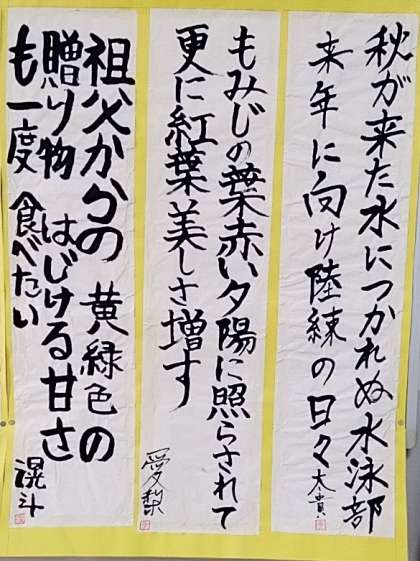 秋が来た水につかれぬ水泳部
来年に向け陸練の日々
太貴
もみじの葉赤い夕陽に照らされて
更に紅葉美しさ増す
愛梨
祖父からの 黄緑色の
贈り物 はじける甘さ
も一度 食べたい
滉斗